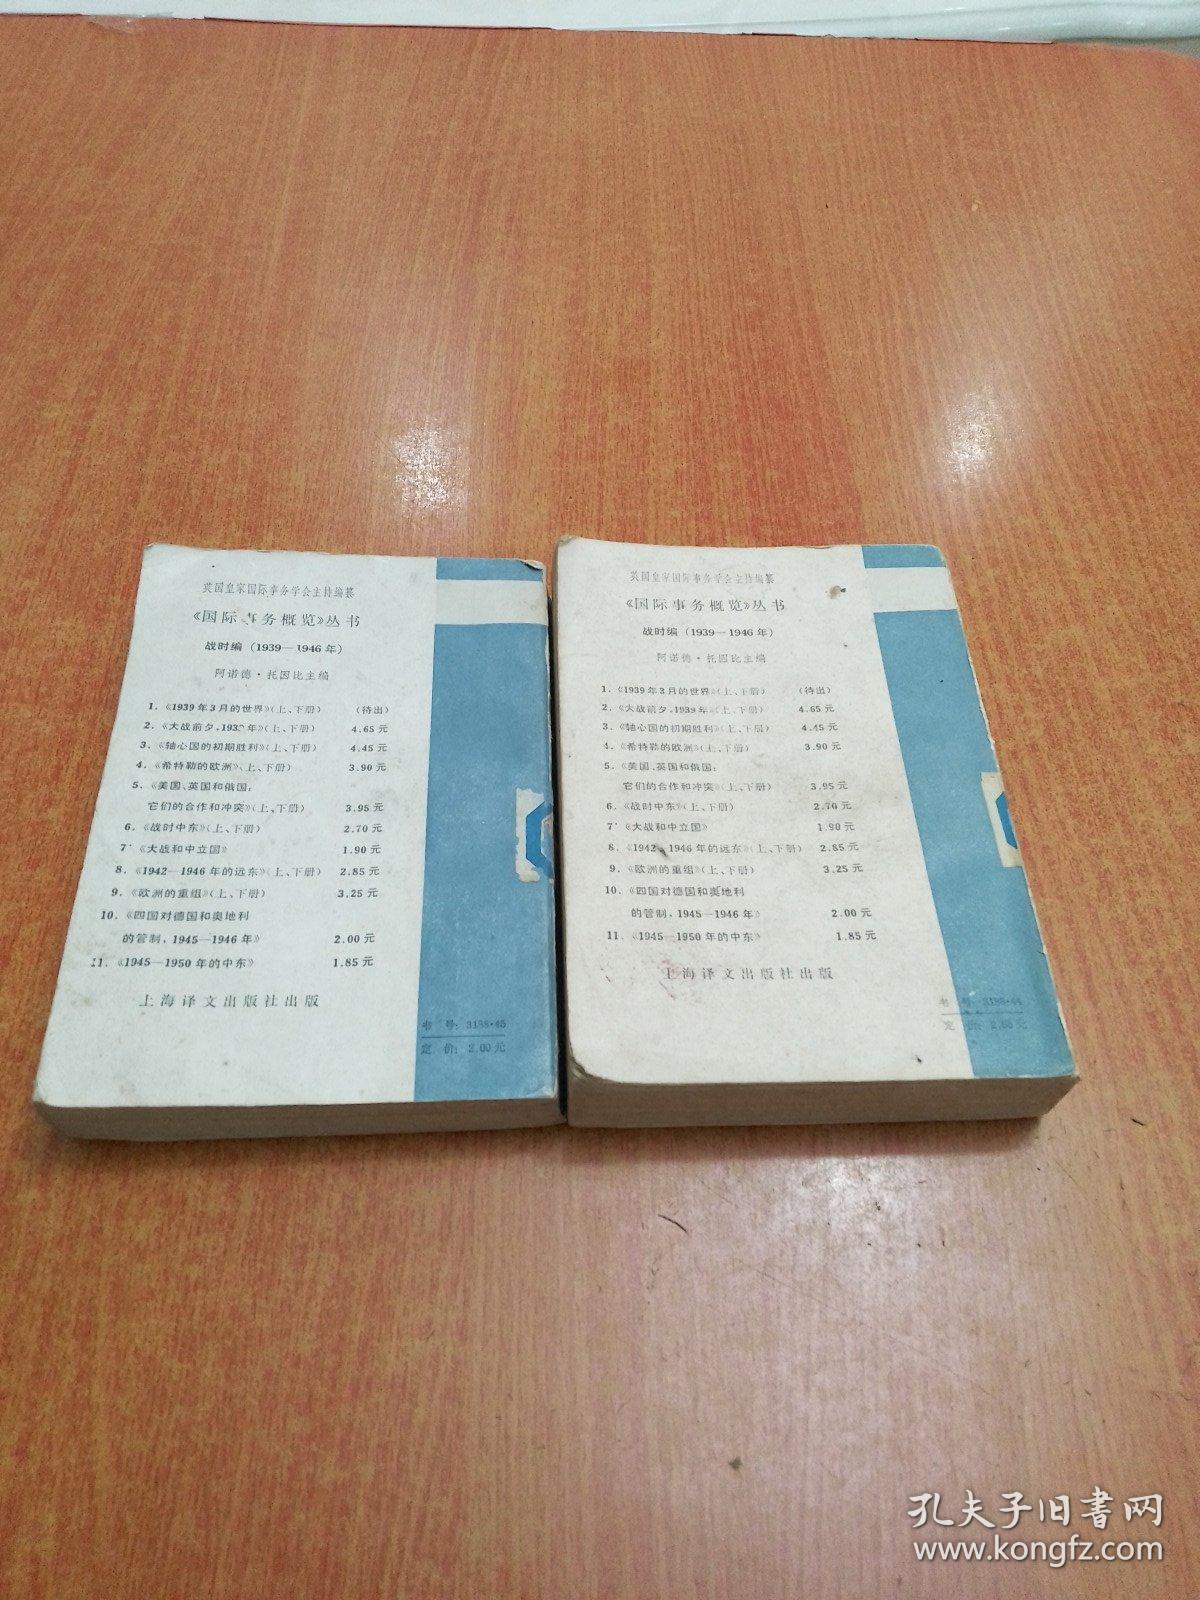 英国皇家国际事务学会主持编纂
《国际事务概览》丛书
战时编（1939—1946年）
阿诺德·托因比主编
1．《1939年3月的世界》（上、下册） （待出）
2．《大战前夕，193 年》（上、下册） 4.65元
3．《轴心国的初期胜利》（上、下册） 4.45元
4．《希特勒的欧洲》（上、下册） 3.90元
5．《美国、英国和俄国：
它们的合作和冲突》（上、下册） 3.95元
6．《战时中东》（上、下册） 2.70元
7．《大战和中立国》 1.90元
8．《1942—1946年的远东》（上、下册） 2.85元
9．《欧洲的重组》（上、下册） 3.25元
10．《四国对德国和奥地利
的管制，1945—1946年》 2.00元
11．《1945—1950年的中东》 1.85元
上海译文出版社出版
书号：3188·45
定价：2.00元
英国皇家国际事务学会主持编纂
《国际事务概览》丛书
战时编（1939—1946年）
阿诺德·托因比主编
1．《1939年3月的世界》（上、下册） （待出）
2．《大战前夕，1939年》（上、下册） 4.65元
3．《轴心国的初期胜利》（上、下册） 4.45元
4．《希特勒的欧洲》（上、下册） 3.90元
5．《美国、英国和俄国：
它们的合作和冲突》（上、下册） 3.95元
6．《战时中东》（上、下册） 2.70元
7．《大战和中立国》 1.90元
8．《1942—1946年的远东》（上、下册） 2.85元
9．《欧洲的重组》（上、下册） 3.25元
10．《四国对德国和奥地利
的管制，1945—1946年》 2.00元
11．《1945—1950年的中东》 1.85元
上海译文出版社出版
书号：3188·44
定价：2.00元
孔夫子旧书网
www.kongfz.com